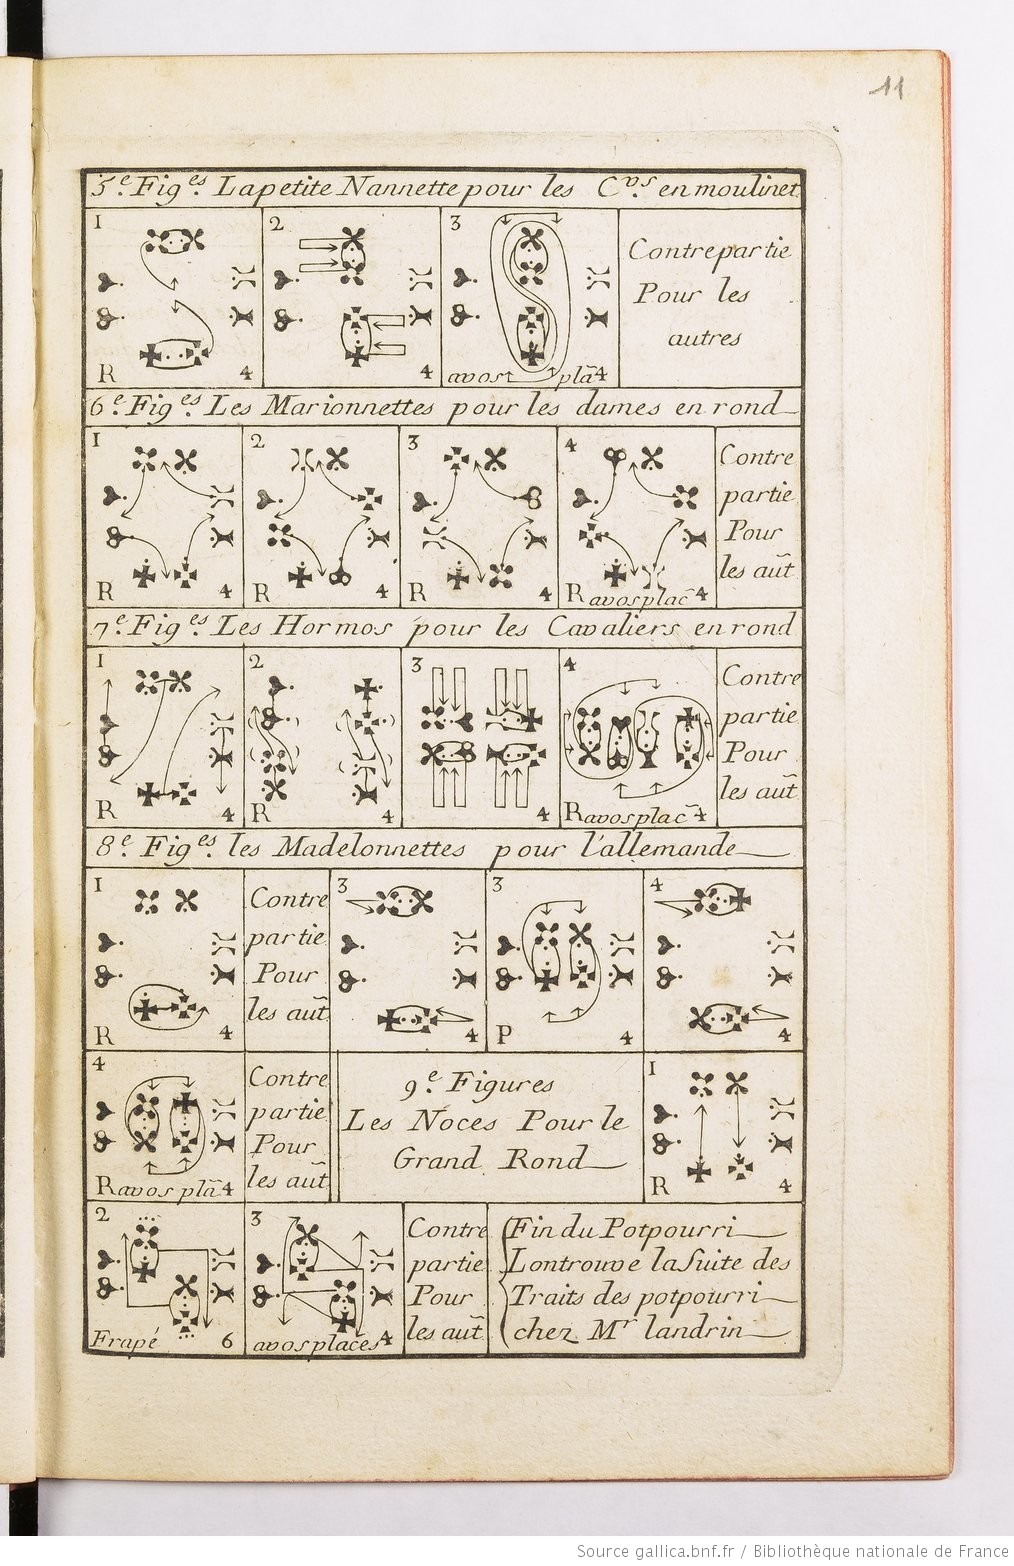 11
5.e Fig.es La petite Nannette pour les C.vrs en moulinet
1
2
3
R 4
4
avos plā 4
Contrepartie
Pour les
autres
6.e Fig.es Les Marionnettes pour les dames en rond
1
2
3
4
R 4
R 4
R 4
R avos plac̄ 4
Contre
partie
Pour
les aut̄
7.e Fig.es Les Hormos pour les Cavaliers en rond
1
2
3
4
R 4
R 4
4
R avos plac̄ 4
Contre
partie
Pour
les aut̄
8.e Fig.es les Madelonnettes pour l'allemande
1
R 4
Contre
partie
Pour
les aut̄
3
4
3
P 4
4
4
4
R avos plā 4
Contre
partie
Pour
les aut̄
9.e Figures
Les Noces Pour le
Grand Rond
1
R 4
2
Frapé 6
3
avos places 4
Contre
partie
Pour
les aut̄
Fin du Potpourri
Lontrouve la Suite des
Traits des potpourri
chez Mr landrin
Source gallica.bnf.fr / Bibliothèque nationale de France